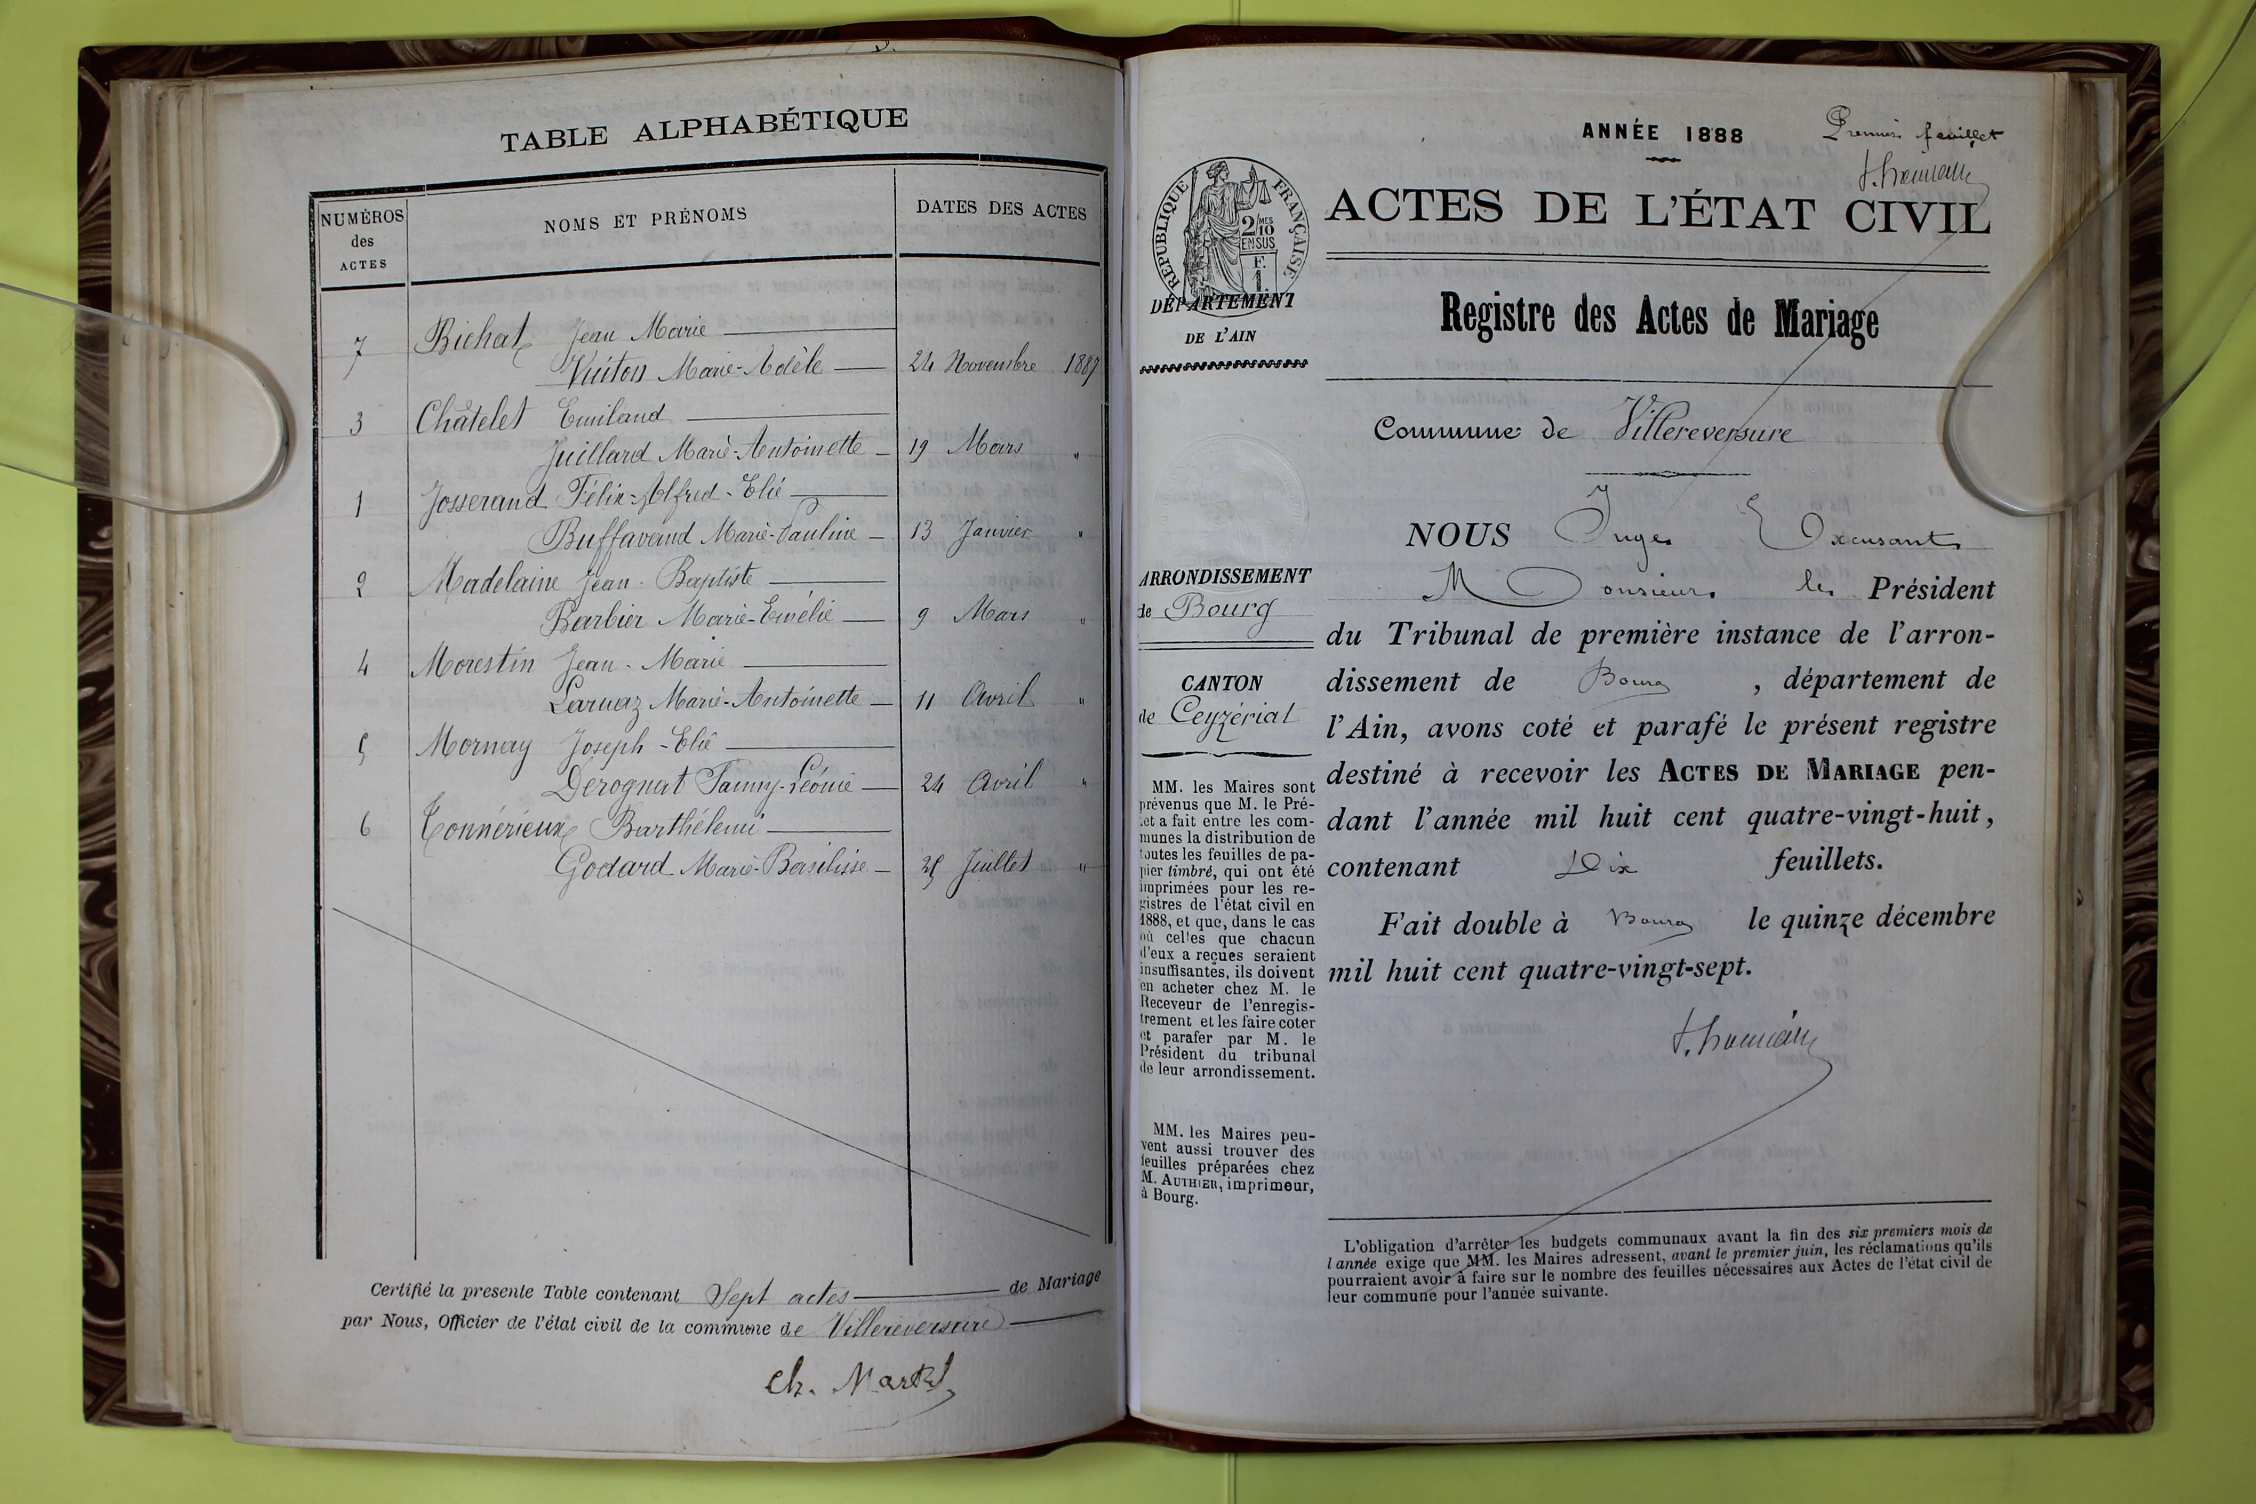 TABLE ALPHABÉTIQUE
NUMÉROS des ACTES
NOMS ET PRÉNOMS
DATES DES ACTES
7 Bichat Jean Marie
Vuiton Marie-Adèle 24 Novembre 1887
3 Châtelet Emiland
Juillard Marie-Antoinette 19 Mars "
1 Josserand Félix-Alfred-Elie
Buffavand Marie-Pauline 13 Janvier "
2 Madelaine Jean-Baptiste
Barbier Marie-Emélie 9 Mars "
4 Morestin Jean-Marie
Laruaz Marie-Antoinette 11 Avril "
5 Mornay Joseph-Elie
Derognat Fanny-Léonie 24 Avril "
6 Tonnérieux Barthélemi
Godard Marie-Basilisse 25 Juillet "
Certifié la presente Table contenant Sept actes de Mariage
par Nous, Officier de l'état civil de la commune de Villereversure
Ch. Martel
ANNÉE 1888
Premier feuillet
RÉPUBLIQUE FRANÇAISE
2/10 MES
EN SUS
F.
1.
ACTES DE L'ÉTAT CIVIL
DÉPARTEMENT
DE L'AIN
Registre des Actes de Mariage
Commune de Villereversure
ARRONDISSEMENT
de Bourg
CANTON
de Ceyzériat
MM. les Maires sont
prévenus que M. le Pré-
fet a fait entre les com-
munes la distribution de
toutes les feuilles de pa-
pier timbré, qui ont été
imprimées pour les re-
gistres de l'état civil en
1888, et que, dans le cas
où celles que chacun
d'eux a reçues seraient
insuffisantes, ils doivent
en acheter chez M. le
Receveur de l'enregis-
trement et les faire coter
et parafer par M. le
Président du tribunal
de leur arrondissement.
MM. les Maires peu-
vent aussi trouver des
feuilles préparées chez
M. AUTHIER, imprimeur,
à Bourg.
NOUS Juge Excusant
Monsieur le Président
du Tribunal de première instance de l'arron-
dissement de Bourg, département de
l'Ain, avons coté et parafé le présent registre
destiné à recevoir les ACTES DE MARIAGE pen-
dant l'année mil huit cent quatre-vingt-huit,
contenant Dix feuillets.
Fait double à Bourg le quinze décembre
mil huit cent quatre-vingt-sept.
L'obligation d'arrêter les budgets communaux avant la fin des six premiers mois de
l'année exige que MM. les Maires adressent, avant le premier juin, les réclamations qu'ils
pourraient avoir à faire sur le nombre des feuilles nécessaires aux Actes de l'état civil de
leur commune pour l'année suivante.